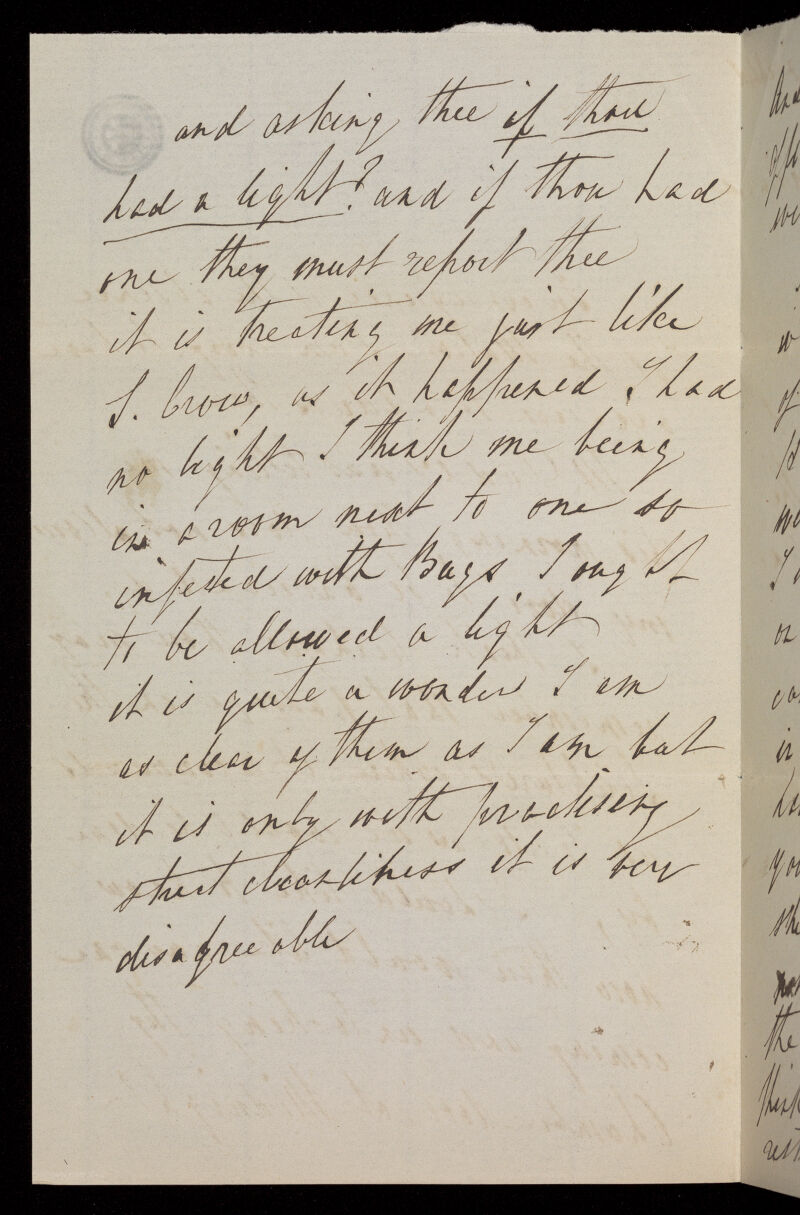 and asking thee if thou
had a light? and if thou had
one they must report thee
it is treating me just like
S. Crow, as it happened I had
no light I think me being
in a room next to one so
infested with Bugs I ought
to be allowed a light
it is quite a wonder I am
as clear of them as I am but
it is only with practising
strict cleanliness it is very
disagreeable